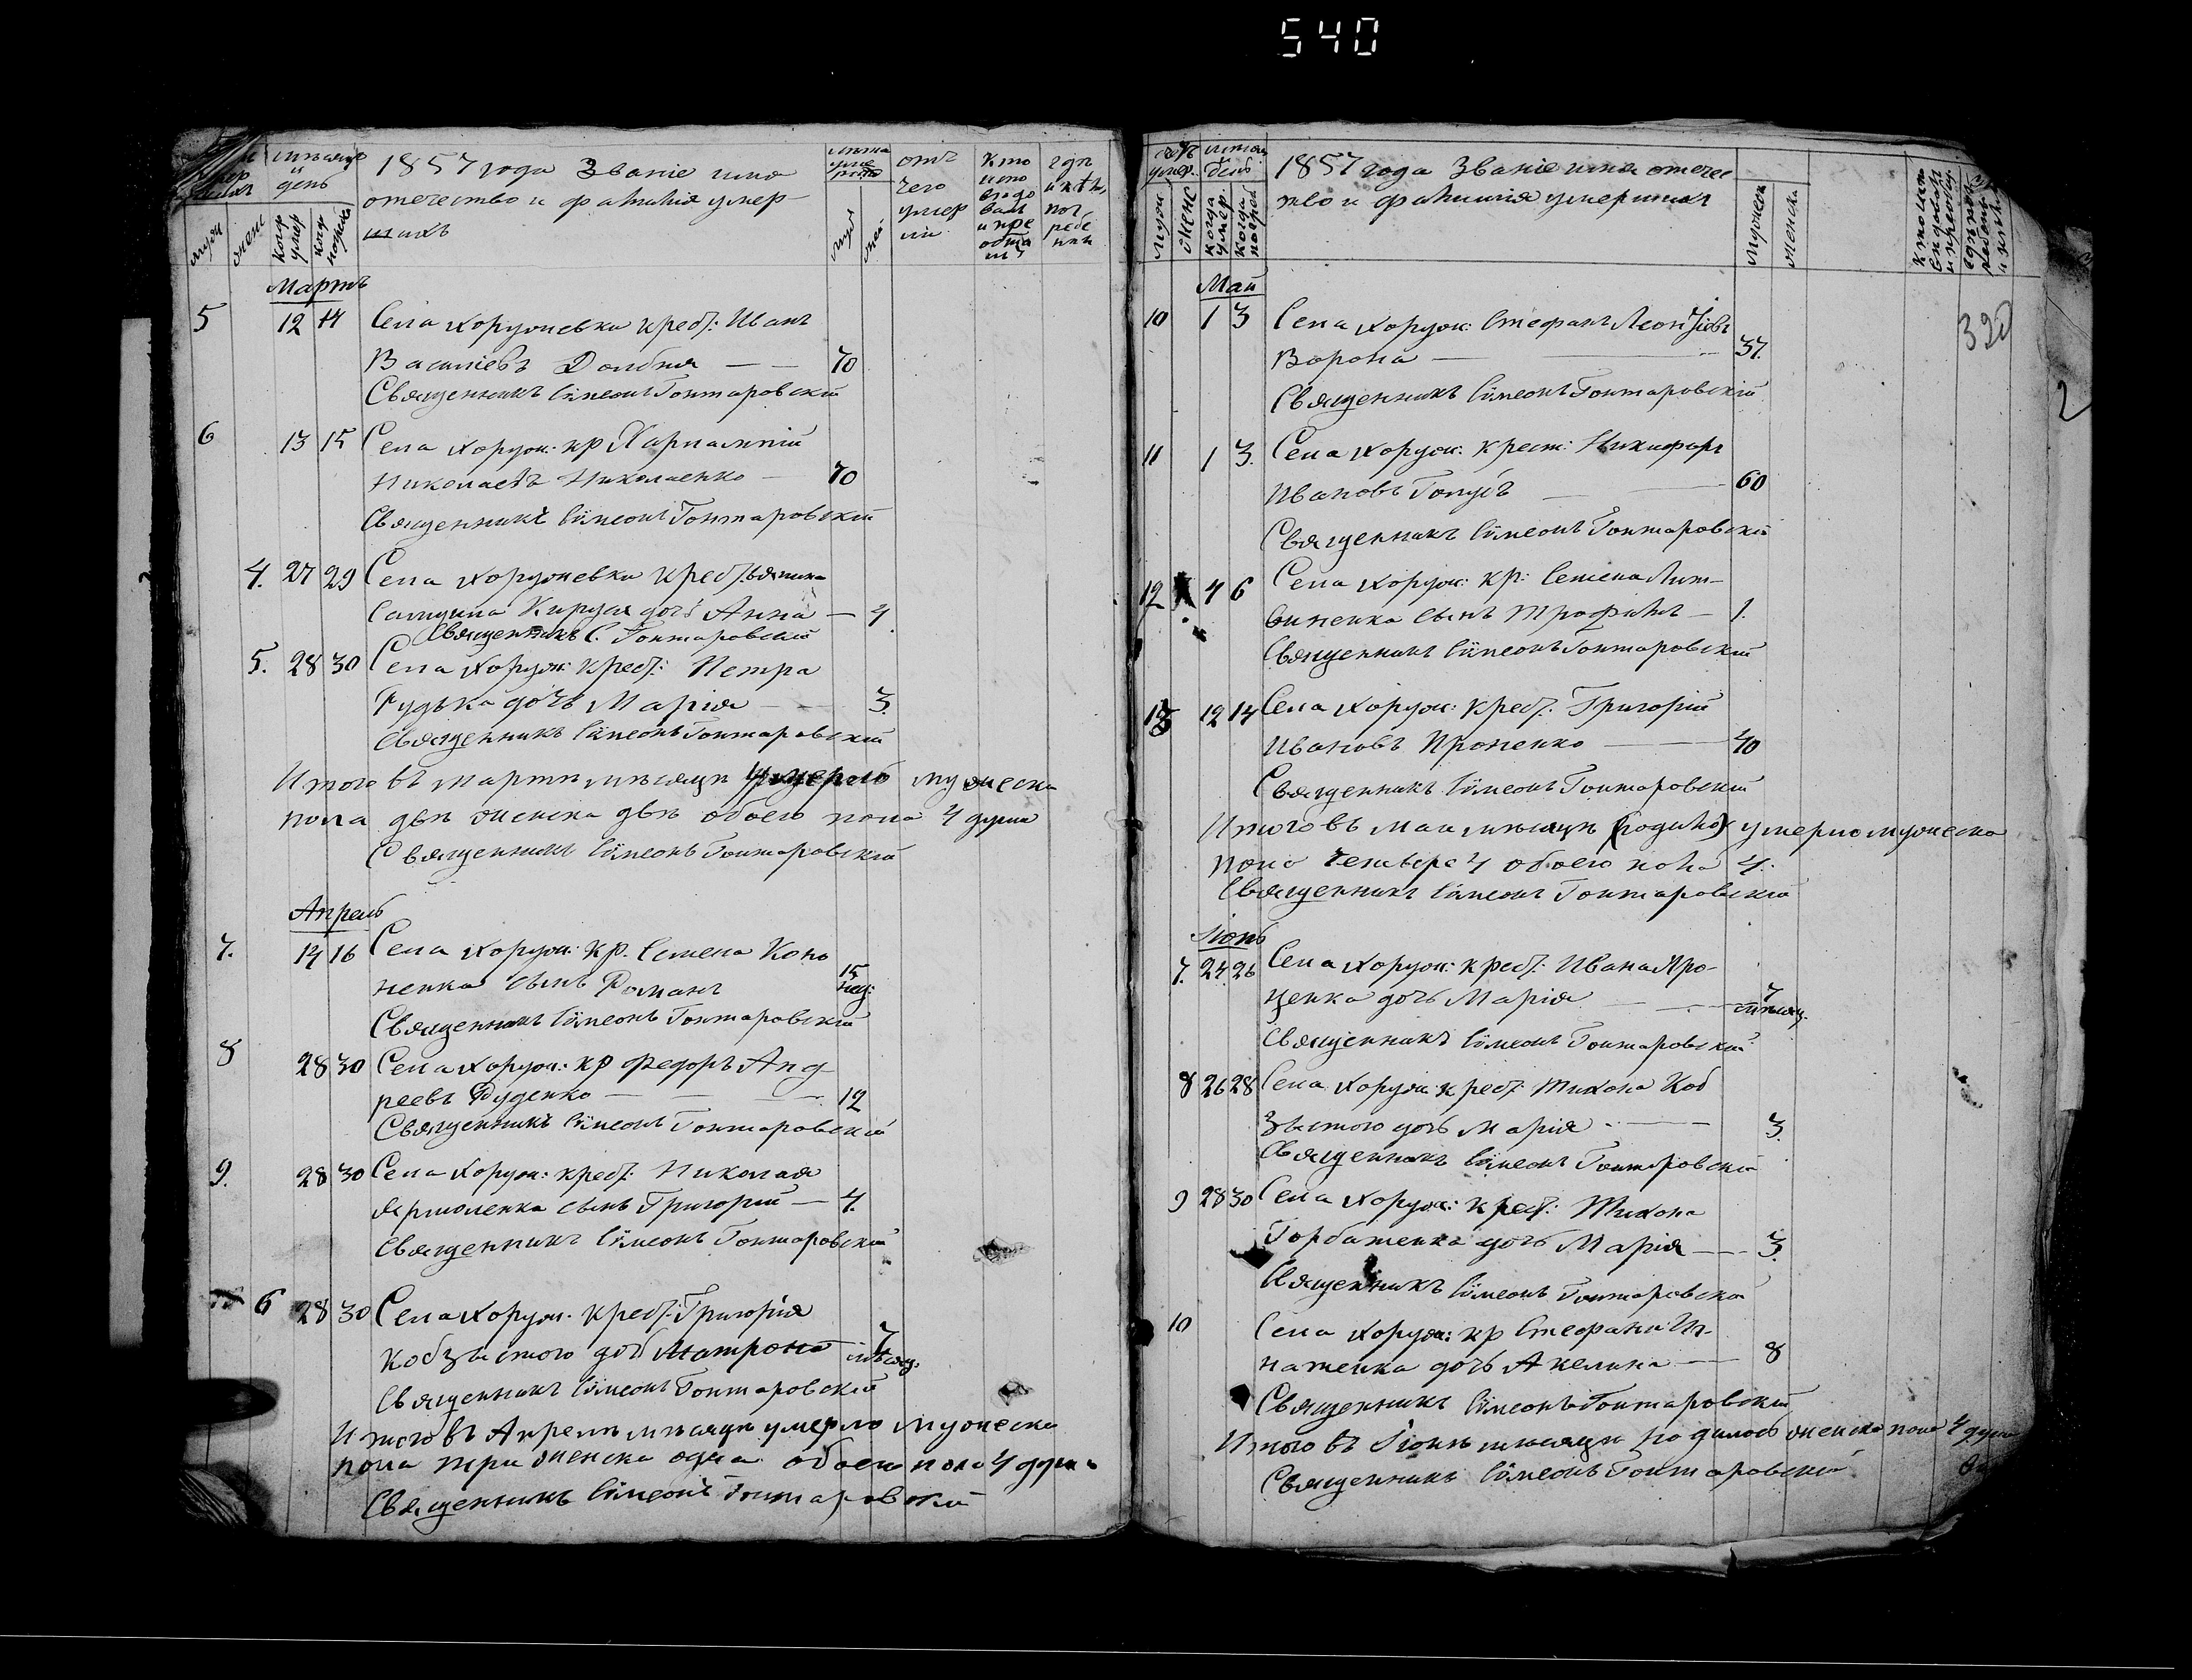 540
мѣсяцъ
и
день
1857 года Званіе имя
отечество и фамилія умер-
шихъ
лѣта
уме
отъ
чего
умер
ли
кто
испо
вѣдо
валъ
и прі
обща
лъ
гдѣ
и кѣмъ
пог
ребе
ны
муж
женс
когда
умер
когда
погреб
муж
жен
Мартъ
5 12 14 Села Хоружевки крест: Иванъ
Василіевъ Долбня — — 70
Священникъ Сѵмеонъ Гонтаровскій
6 13 15 Села Хоруж: кр Харлампій
Николаевъ Николаенко — 70
Священникъ Сѵмеонъ Гонтаровскій
4. 27 29 Села Хоружевки крестьянина
дочь Анна — 4
Священникъ С. Гонтаровскій
5. 28 30 Села Хоруж: крест: Петра
Рудька дочь Марія — 3.
Священникъ Сѵмеонъ Гонтаровскій
Итого въ мартѣ мѣсяцѣ умерло мужеска
пола два женска двѣ обоего пола 4 души
Священникъ Сѵмеонъ Гонтаровскій
Апрель
7. 14 16 Села Хоруж: кр. Семена Коно
ненка сынъ Романъ 15 нед:
Священникъ Сѵмеонъ Гонтаровскій
8 28 30 Села Хоруж: кр Федоръ Анд
реевъ Руденко — — 12
Священникъ Сѵмеонъ Гонтаровскій
9. 28 30 Села Хоруж: крест: Николая
Ярмоленка сынъ Григорій — 4.
Священникъ Сѵмеонъ Гонтаровскій
6 28 30 Села Хоруж. крест: Григорія
Кобзыстого дочь Матрона — 7 мѣсяц.
Священникъ Сѵмеонъ Гонтаровскій
Итого въ Апрелѣ мѣсяцѣ умерло мужеска
пола три женска одна обоего пола 4 души
Священникъ Сѵмеонъ Гонтаровскій
умер.
день
1857 года Званіе имя отечес
тво и фамилія умершихъ
муж
женс
когда
умер.
когда
погреб
мужск
женска
Май
10 1 3 Села Хоруж: Стефанъ Леонтіевъ
Ворона — 37.
Священникъ Сѵмеонъ Гонтаровскій
320
2
11 1 3. Села Хоруж: крест: Никифоръ
Ивановъ Голубъ — — 60
Священникъ Сѵмеонъ Гонтаровскій
12 4 6 Села Хоруж: кр: Семена Лит-
виненка сынъ Трофимъ — 1.
Священникъ Сѵмеонъ Гонтаровскій
13 12 14 Села Хоруж: крест: Григорій
Ивановъ Проненко — 40
Священникъ Сѵмеонъ Гонтаровскій
Итого въ маи мѣсяцѣ (родило) умерло мужеска
пола четыре 4 обоего пола 4.
Священникъ Сѵмеонъ Гонтаровскій
Іюнь
7. 24. 26 Села Хоруж: крест: Ивана Про-
ценка дочь Марія — 7 мѣсяц.
Священникъ Сѵмеонъ Гонтаровскій
8 26 28 Села Хоруж: крест: Тихона Коб
зыстого дочь Марія — 3.
Священникъ Сѵмеонъ Гонтаровскій
9 28 30 Села Хоруж: крест: Тихона
Горбатенка дочь Марія — 3.
Священникъ Сѵмеонъ Гонтаровскій
10 Села Хоруж: кр Стефана Иг-
натенка дочь Акелина — 8
Священникъ Сѵмеонъ Гонтаровскій
Итого въ Іюнѣ мѣсяцѣ родилось женска пола 4 души
Священникъ Сѵмеонъ Гонтаровскій